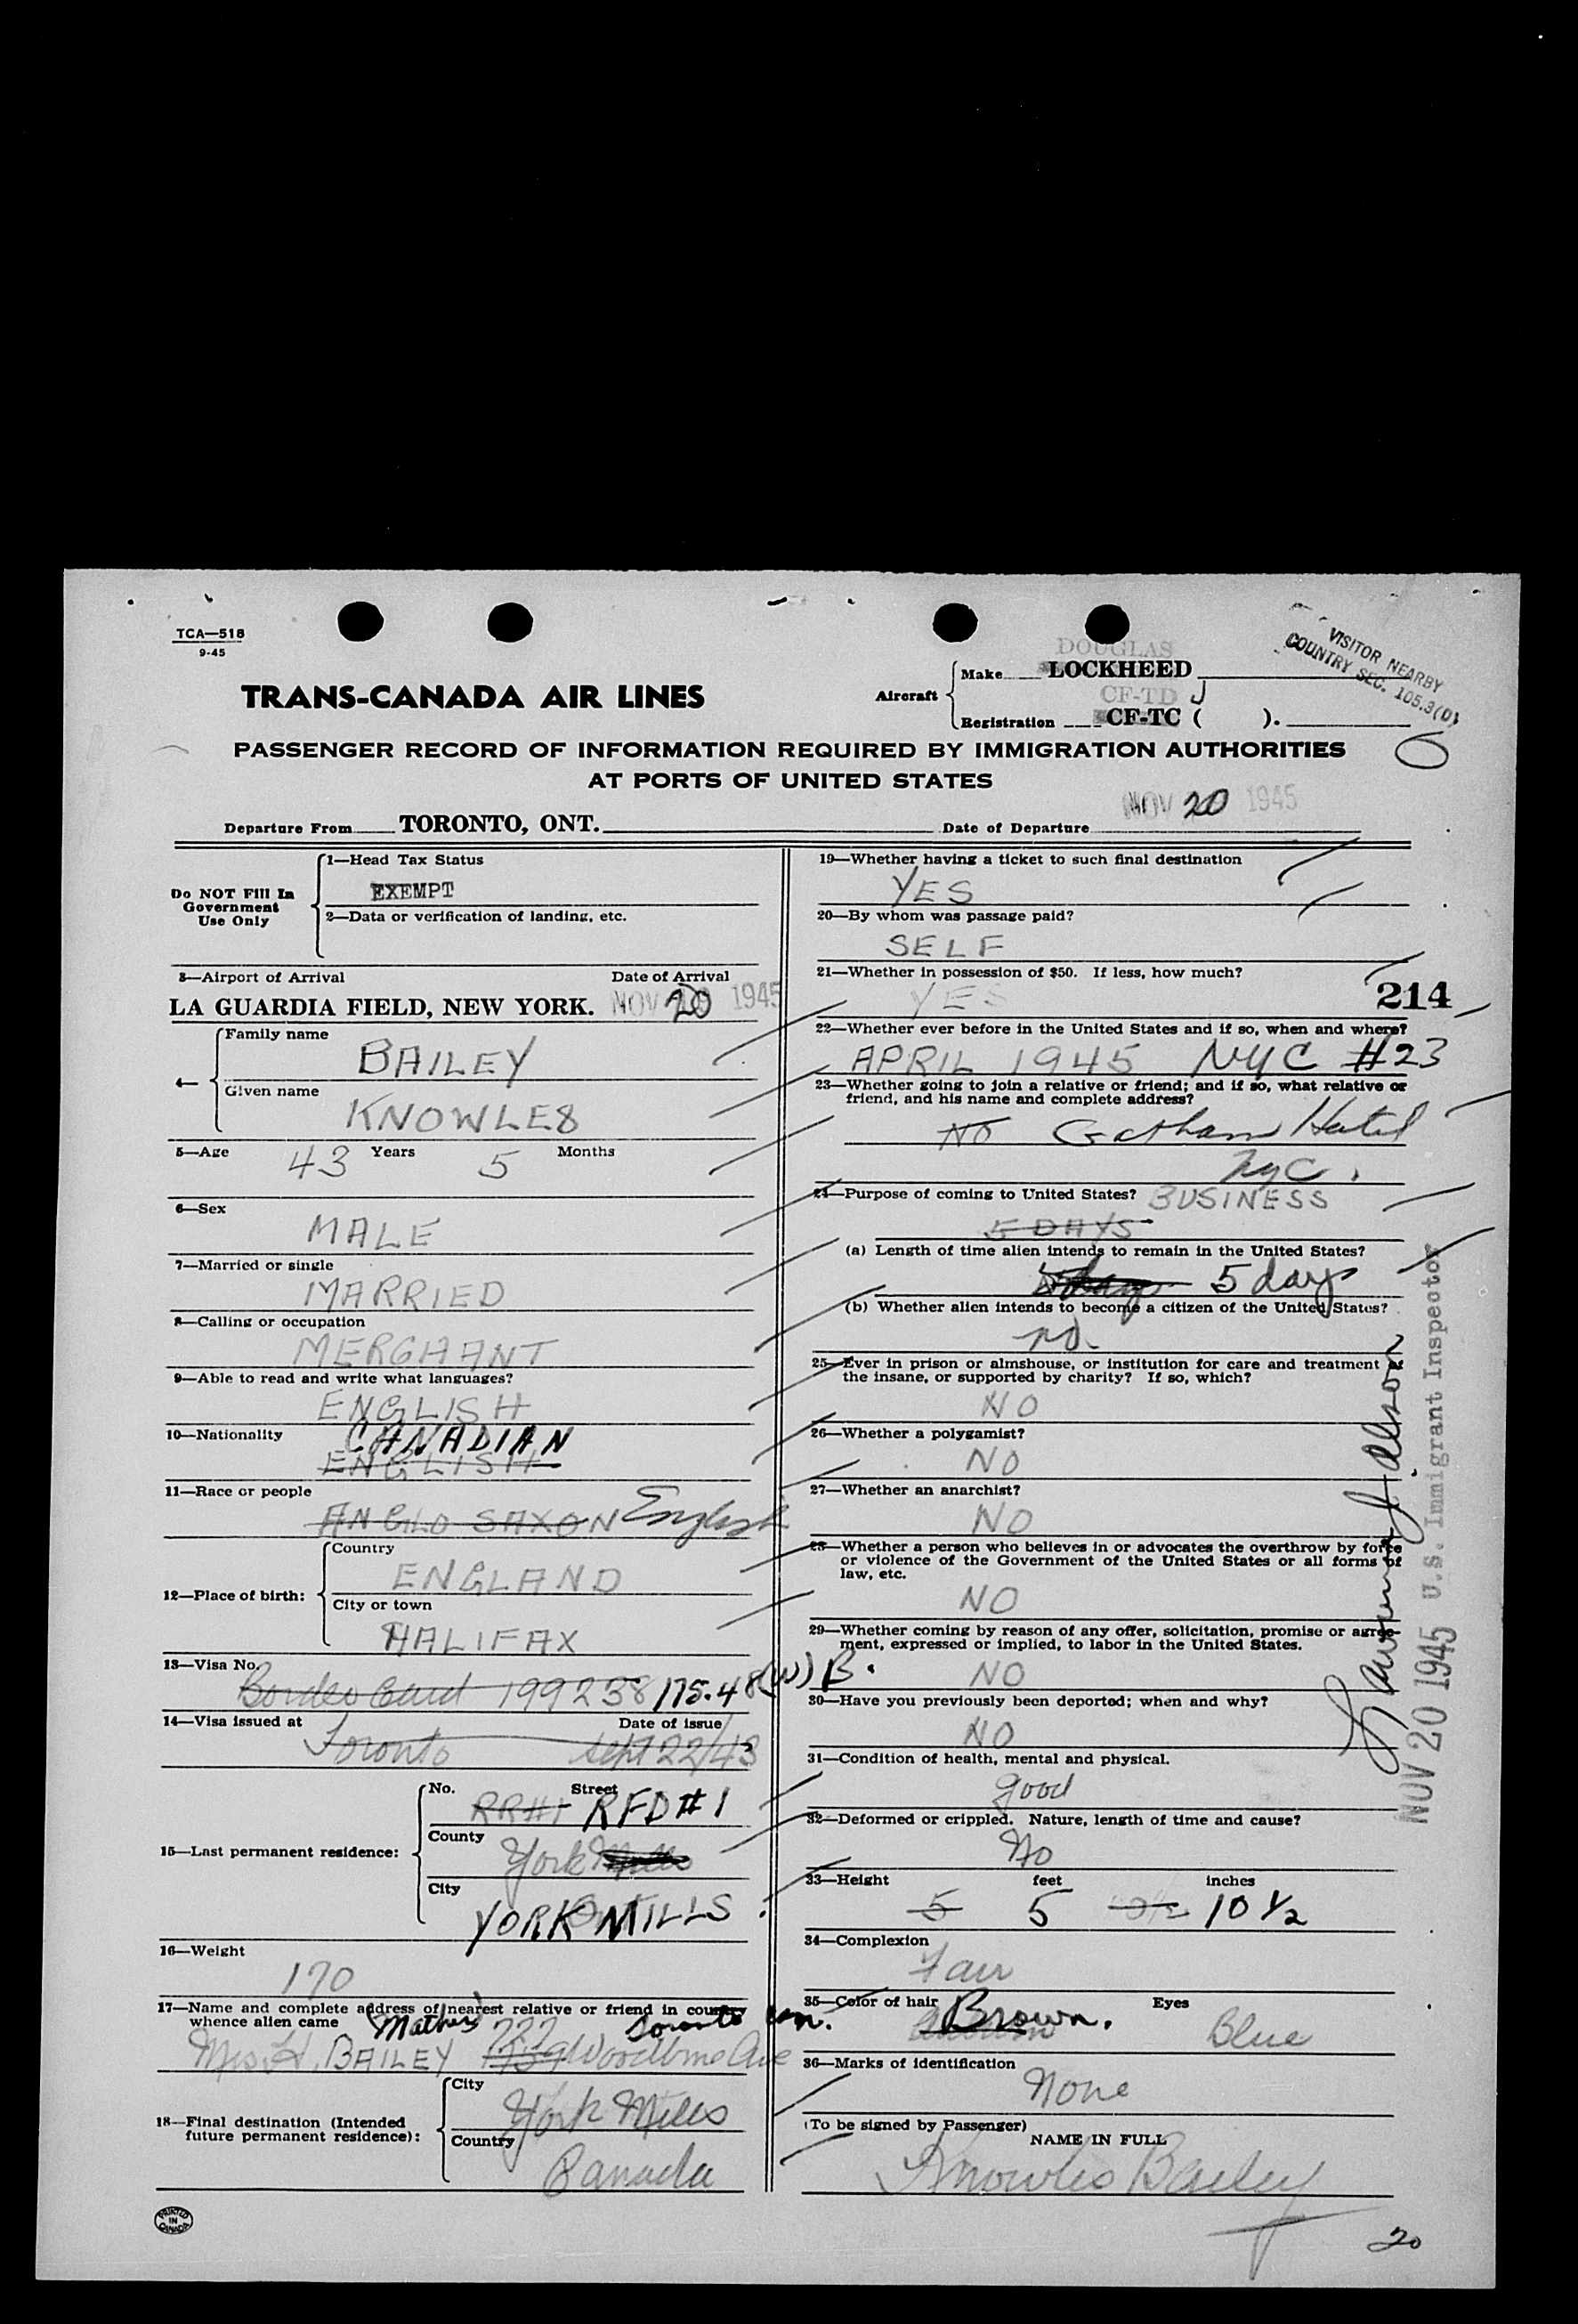 TCA—518
9-45
TRANS-CANADA AIR LINES
Aircraft
DOUGLAS
Make LOCKHEED
CF-TD J
Registration CF-TC ( ).
VISITOR NEARBY
COUNTRY SEC. 105.3(D)
PASSENGER RECORD OF INFORMATION REQUIRED BY IMMIGRATION AUTHORITIES
AT PORTS OF UNITED STATES
Departure From TORONTO, ONT.
Date of Departure NOV 20 1945
Do NOT Fill In
Government
Use Only
1—Head Tax Status
EXEMPT
2—Data or verification of landing, etc.
3—Airport of Arrival Date of Arrival
LA GUARDIA FIELD, NEW YORK. NOV 20 1945
4—
Family name
BAILEY
Given name
KNOWLES
5—Age 43 Years 5 Months
6—Sex
MALE
7—Married or single
MARRIED
8—Calling or occupation
MERCHANT
9—Able to read and write what languages?
ENGLISH
10—Nationality CANADIAN
ENGLISH
11—Race or people
ANGLO SAXON English
12—Place of birth:
Country
ENGLAND
City or town
HALIFAX
13—Visa No.
Border Card 199238 175.48(W) B.
14—Visa issued at Date of issue
Toronto Sept 22/43
15—Last permanent residence:
No. Street
RR#1 RFD #1
County
York Mills
City
YORK MILLS
16—Weight
170
17—Name and complete address of nearest relative or friend in country
whence alien came Mother 222 Toronto Can.
Mrs. H. BAILEY Woodbine Ave
18—Final destination (Intended
future permanent residence):
City
York Mills
Country
Canada
PRINTED
IN
CANADA
19—Whether having a ticket to such final destination
YES
20—By whom was passage paid?
SELF
21—Whether in possession of $50. If less, how much?
YES
214
22—Whether ever before in the United States and if so, when and where?
APRIL 1945 NYC #23
23—Whether going to join a relative or friend; and if so, what relative or
friend, and his name and complete address?
NO Gotham Hotel
NyC.
24—Purpose of coming to United States? BUSINESS
5 DAYS
(a) Length of time alien intends to remain in the United States?
5 days 5 days
(b) Whether alien intends to become a citizen of the United States?
no.
25—Ever in prison or almshouse, or institution for care and treatment of
the insane, or supported by charity? If so, which?
NO
26—Whether a polygamist?
NO
27—Whether an anarchist?
NO
28—Whether a person who believes in or advocates the overthrow by force
or violence of the Government of the United States or all forms of
law, etc.
NO
29—Whether coming by reason of any offer, solicitation, promise or agree-
ment, expressed or implied, to labor in the United States.
NO
30—Have you previously been deported; when and why?
NO
31—Condition of health, mental and physical.
good
32—Deformed or crippled. Nature, length of time and cause?
No
33—Height feet inches
5 5 10 1/2
34—Complexion
Fair
35—Color of hair Eyes
Brown. Blue
36—Marks of identification
None
(To be signed by Passenger)
NAME IN FULL
Knowles Bailey
20
NOV 20 1945 U.S. Immigrant Inspector